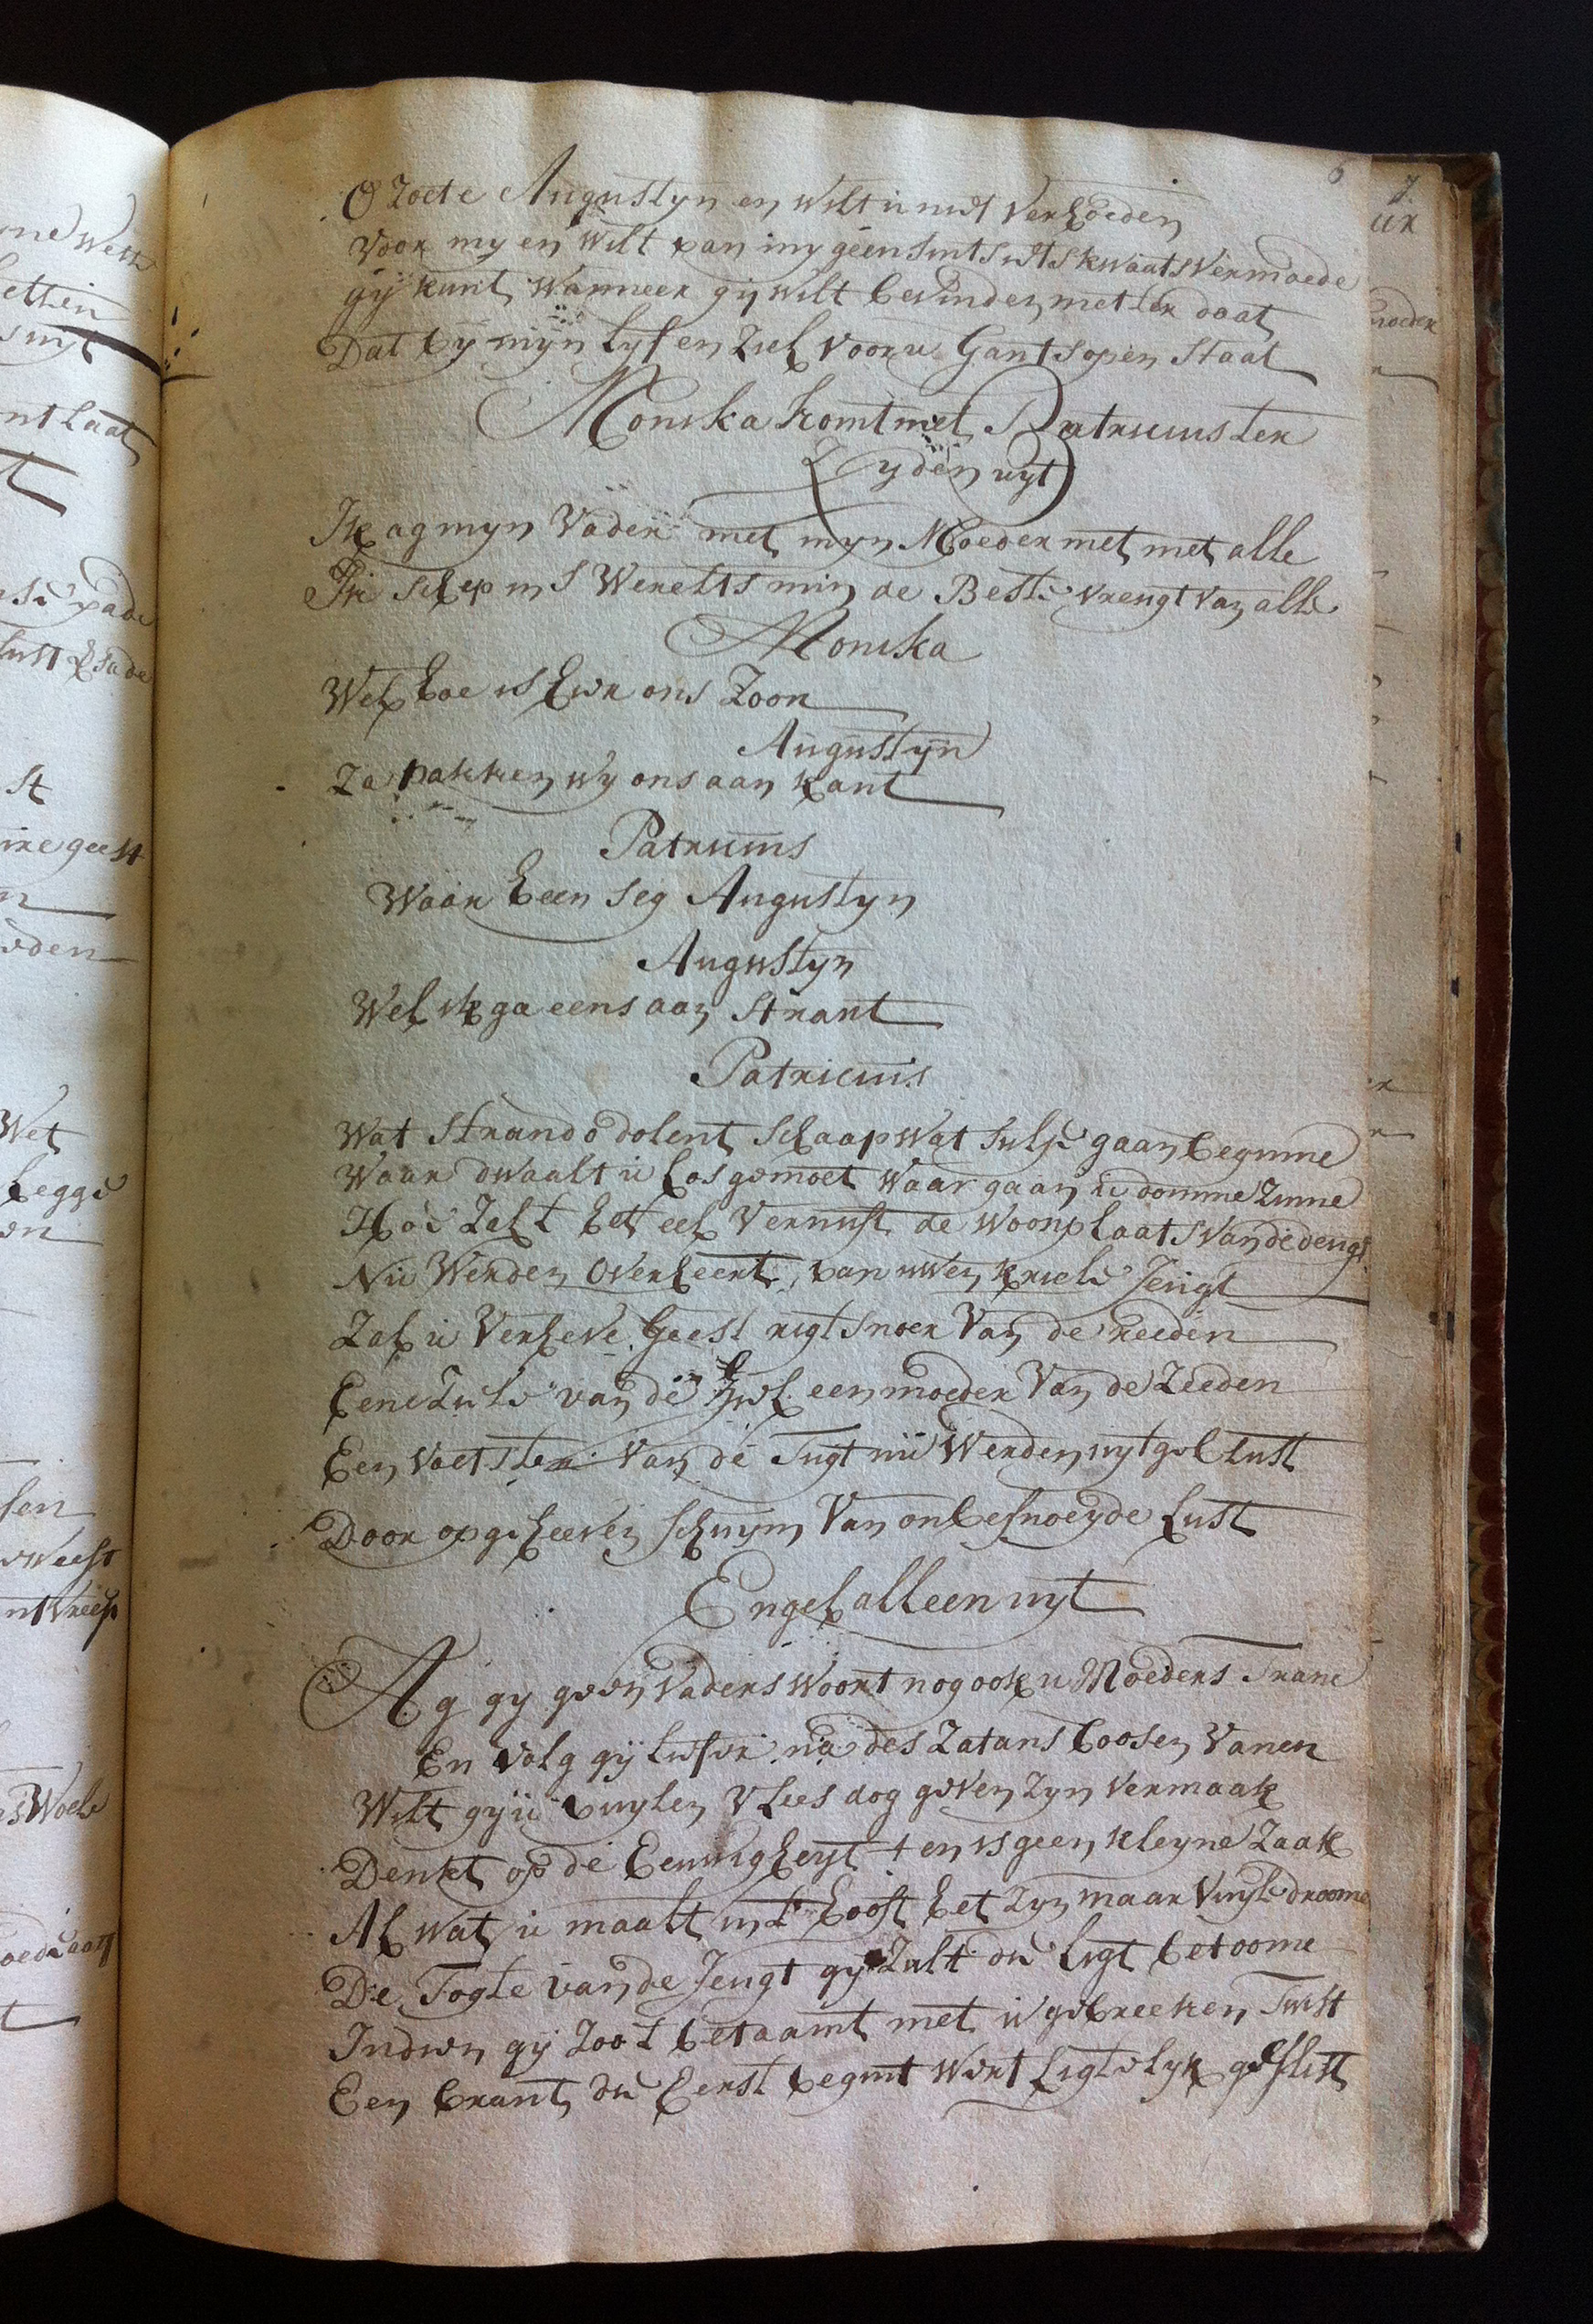 6
O Zoete Augustyn en wilt u niet verhoeden
Voor my en wilt van my geen sints iets kwaats vermoede
gij kunt wanneer gij wilt bevinden met ter daat
Dat bij mijn lyf en ziel voor u Gants open staat
Monika komt met Patricius ter
Zyden uyt
Ik ag myn Vader niet myn Moeder niet met alle
Ik schep in s Werelts min de Beste vreugt van alle
Monika
Wel hoe is hier ons Zoon
Augustijn
Za pakken wy ons aan kant
Patricius
Waar heen seg Augustyn
Augustyn
Wel ik ga eens aan strant
Patricius
Wat strand o dolent schaap wat sulje gaan beginne
Waar dwaalt u los gemoet waar gaan u domme Zinne
Hoe Zal t het eel Vernuft de woonplaats van de deugt
Nu Werden Overheert van uwen kriele Jeugt
Zal u Verheve Geest rigtsnoer Van de reeden
Eene Zuile van de Ziel een moeder Van de Zeeden
Een voetster van de Tugt nu Werden uytgeblust
Door opgeheeven schuym Van onbesnoeyde Lust
Engel alleen uyt
Ag gy geen Vaders woort nog ook u Moeders Trane
En volg gij liever na des Zatans boosen Vanen
Wilt gij u vuylen Vlees dog geven Zyn vermaak
Denkt op de Eeuwigheyt t en is geen kleyne Zaak
Al wat u maalt in t hooft het Zyn maar Vuyle droome
De Togte van de Jeugt gij Zult die ligt betoome
Indien gij Zoo t betaamt met u gebreeken Twist
Een brant die Eerst begint wert ligtelyk geslist